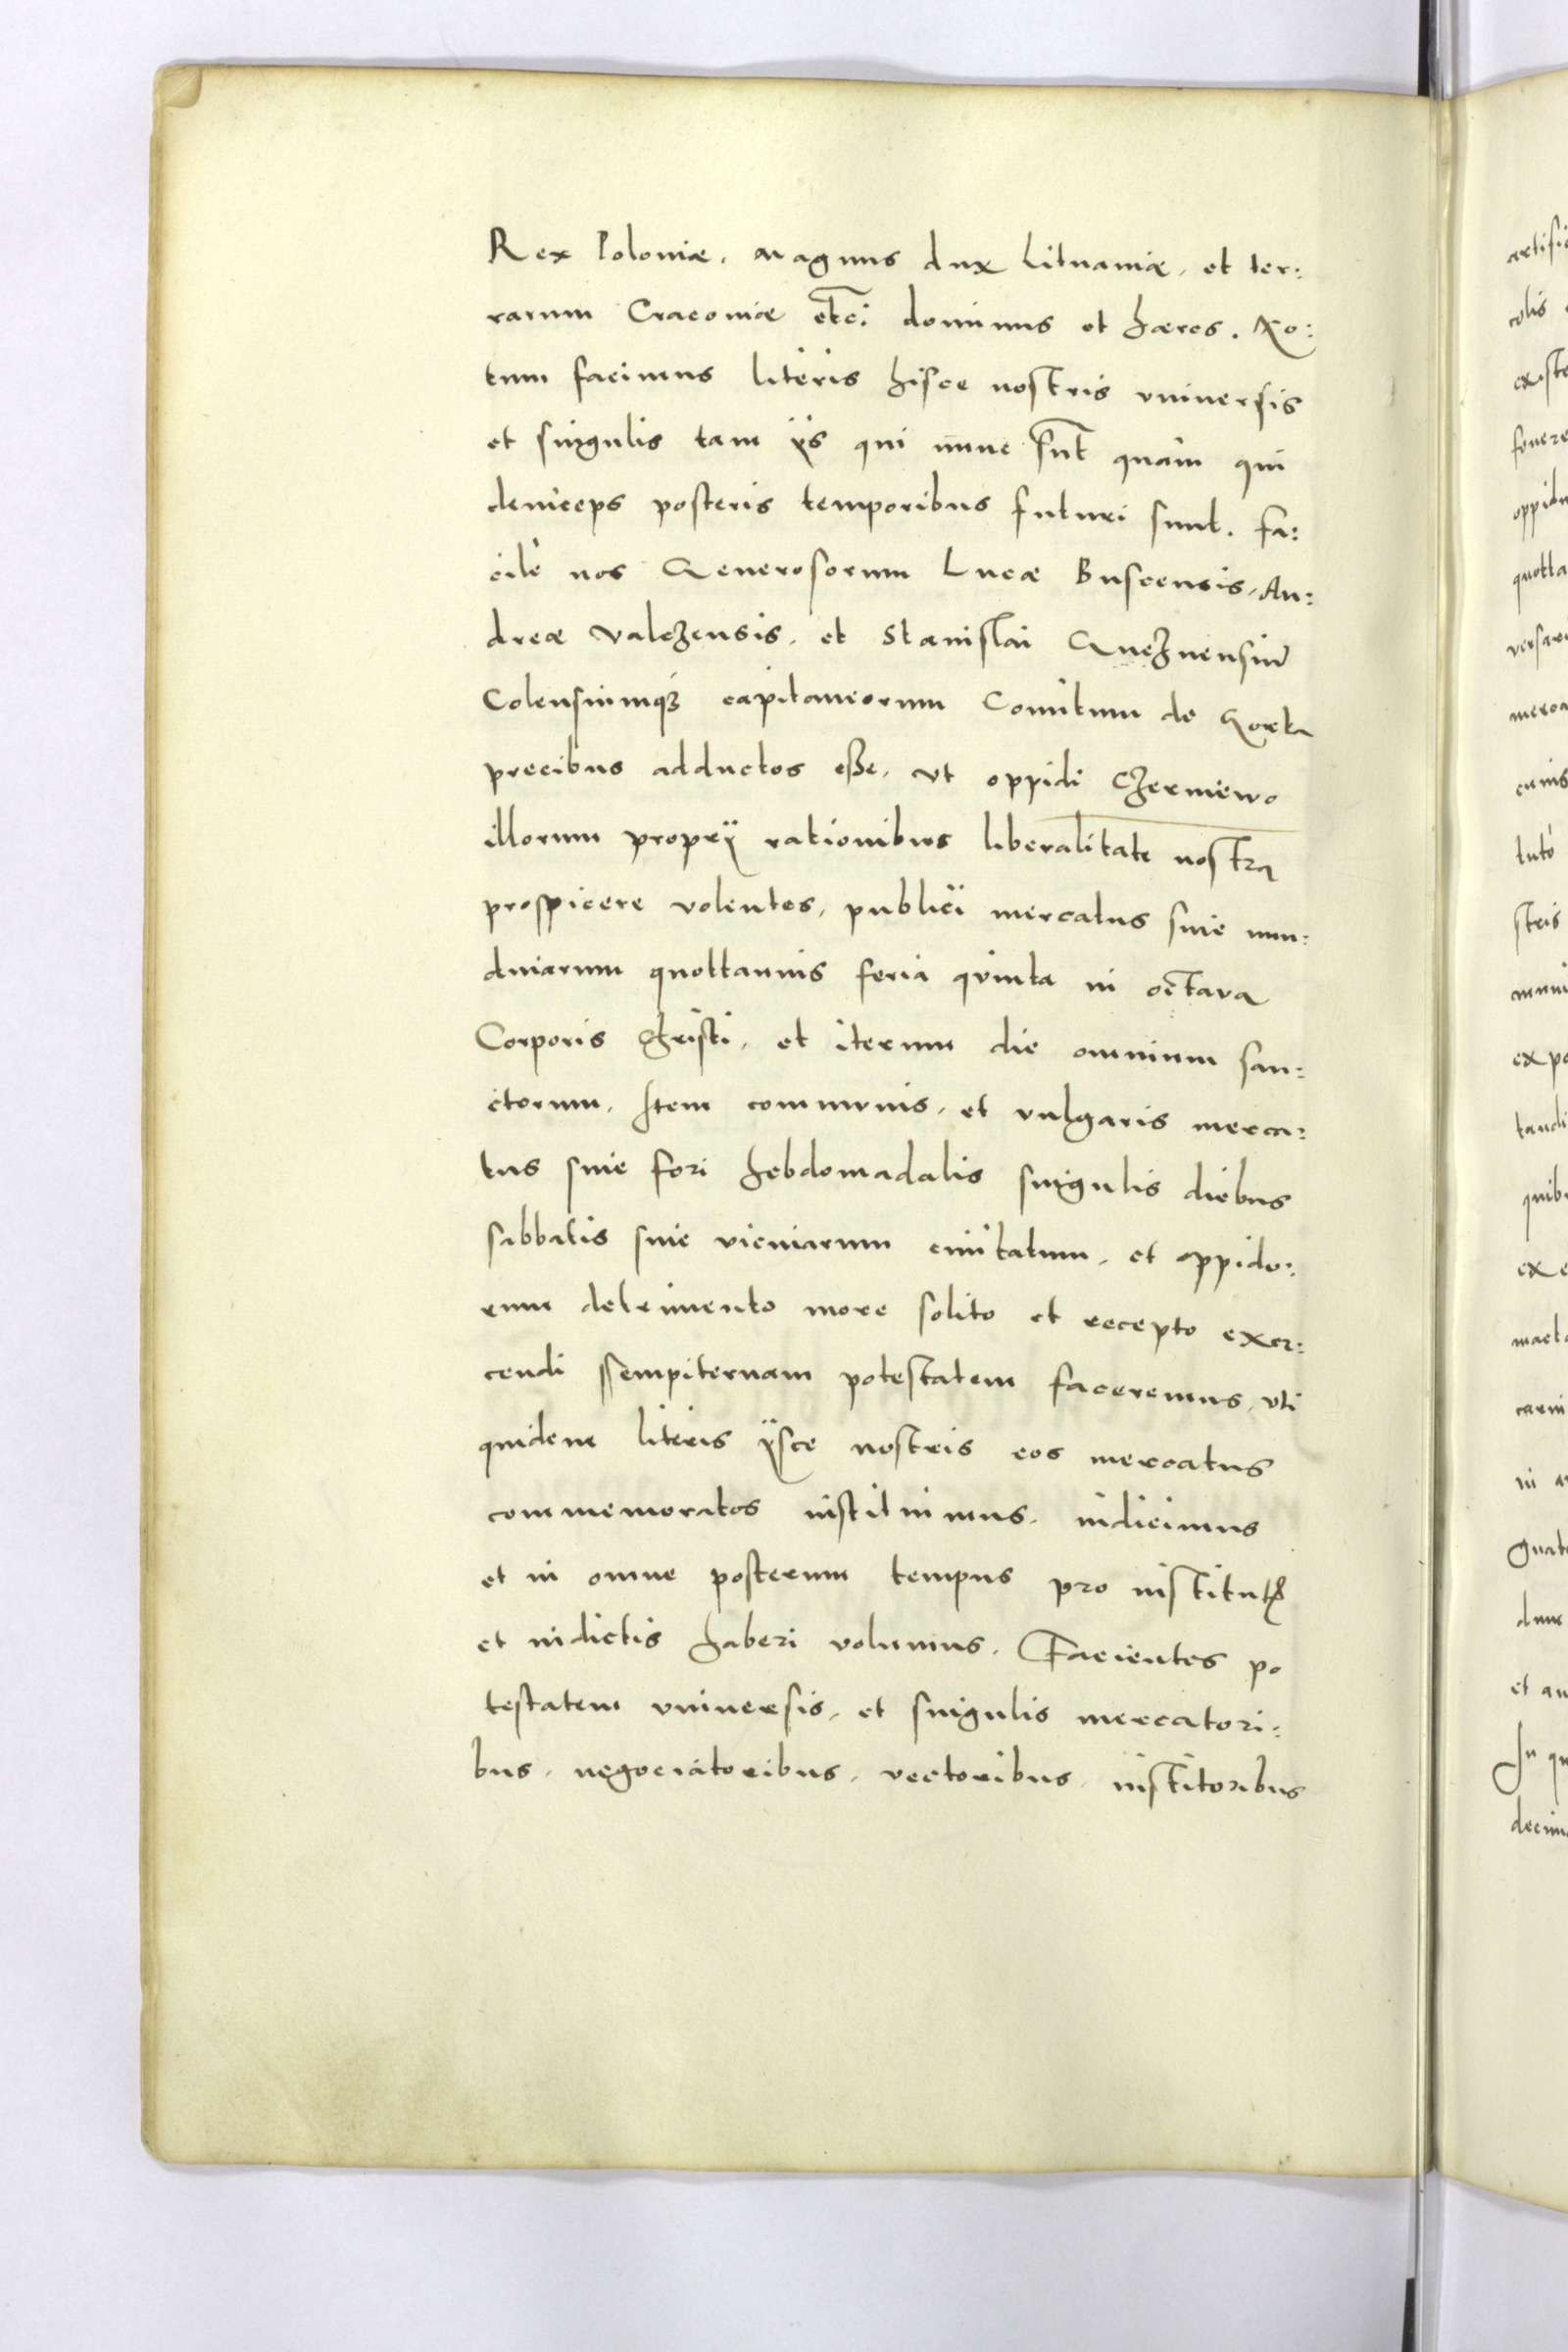 Rex Poloniæ, Magnus dux Lituaniæ, et ter:
rarum Cracoviæ etc. dominus et hæres. No:
tum facimus literis hisce nostris vniuersis
et singulis tam ijs qui nunc sunt quàm qui
deinceps posteris temporibus futuri sunt. Fa:
cilè nos Generosorum Lucæ Buscensis, An:
dreæ Valczensis, et Stanislai Gneznensiũ
Colensiumq3 capitaneorum Comitum de Gorka
precibus adductos esse, vt oppidi Czerniewo
illorum proprij rationibus liberalitate nostra
prospicere volentes, publici mercatus siue nun:
dinarum quottannis feria quinta in octava
Corporis Christi, et iterum die omnium san:
ctorum. Item communis, et vulgaris merca:
tus siue fori hebdomadalis singulis diebus
sabbatis sine vicinarum ciuitatum, et oppido:
rum detrimento more solito et recepto exer:
cendi sempiternam potestatem faceremus, vti
quidem literis ijsce nostris eos mercatus
commemoratos instituimus, indicimus
et in omne posterum tempus pro institutis
et indictis haberi volumus. Facientes po
testatem vniuersis, et singulis mercatori:
bus, negociatoribus, vectoribus, institoribus